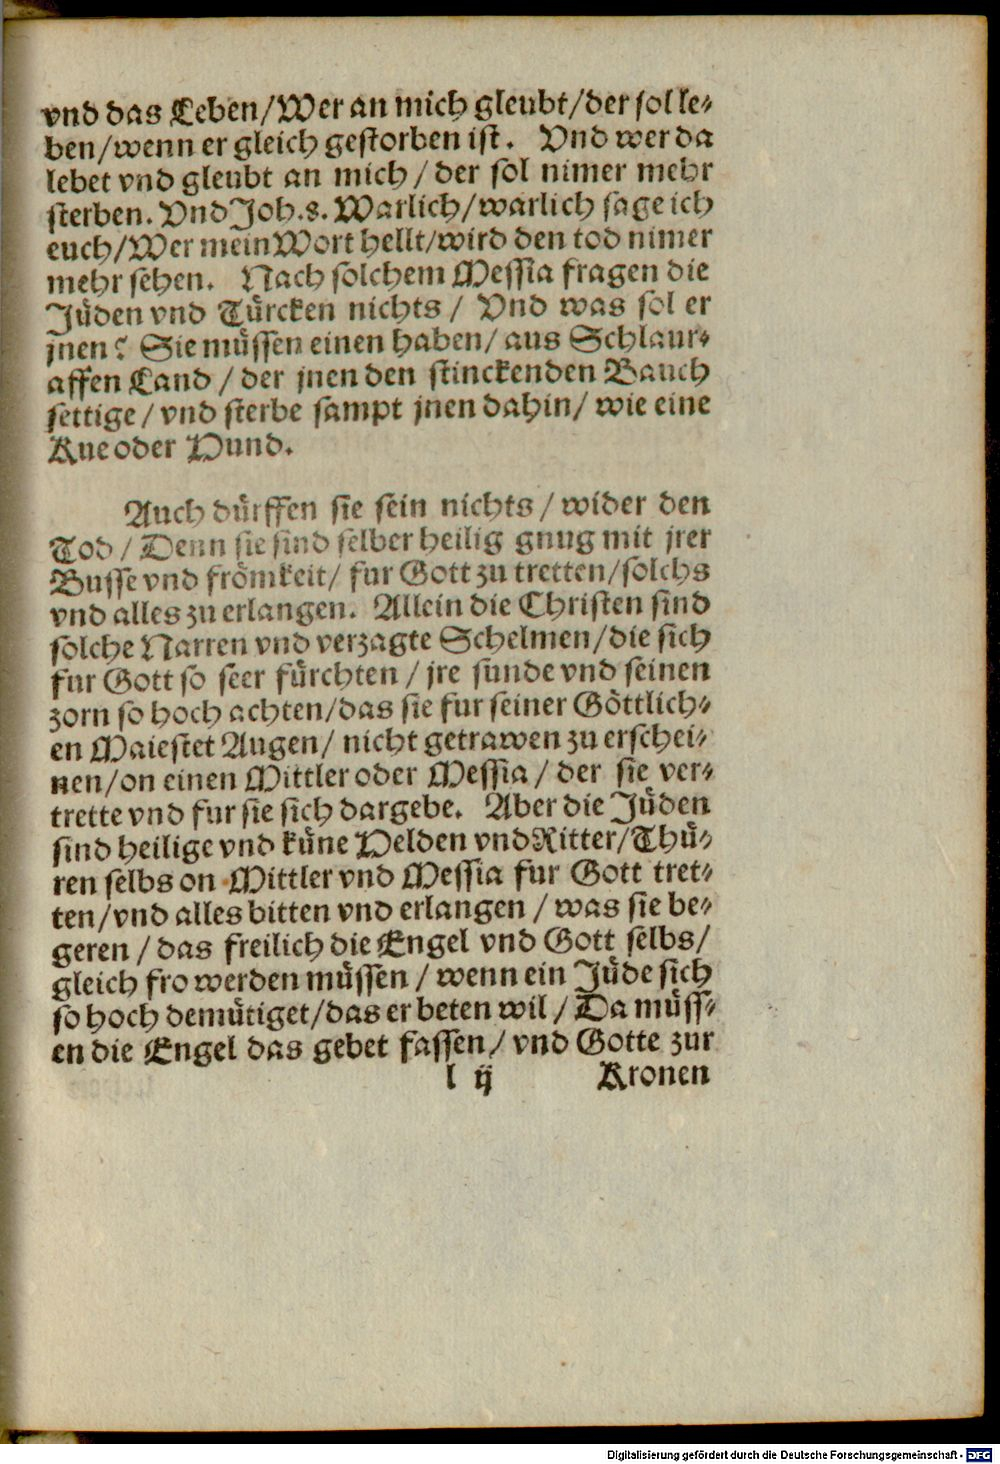 vnd das Leben/Wer an mich gleubt/der sol le⸗
ben/wenn er gleich gestorben ist. Vnd wer da
lebet vnd gleubt an mich/der sol nimer mehr
sterben. Vnd Joh.8. Warlich/warlich sage ich
euch/Wer mein Wort hellt/wird den tod nimer
mehr sehen. Nach solchem Messia fragen die
Jüden vnd Türcken nichts/Vnd was sol er
jnen? Sie müssen einen haben/aus Schlaur⸗
affen Land/der jnen den stinckenden Bauch
settige/vnd sterbe sampt jnen dahin/wie eine
Kue oder Hund.
Auch dürffen sie sein nichts/wider den
Tod/Denn sie sind selber heilig gnug mit jrer
Busse vnd frömkeit/fur Gott zu tretten/solchs
vnd alles zu erlangen. Allein die Christen sind
solche Narren vnd verzagte Schelmen/die sich
fur Gott so seer fürchten/jre sunde vnd seinen
zorn so hoch achten/das sie fur seiner Göttlich⸗
en Maiestet Augen/nicht getrawen zu erschei⸗
nen/on einen Mittler oder Messia/der sie ver⸗
trette vnd fur sie sich dargebe. Aber die Jüden
sind heilige vnd küne Helden vnd Ritter/Thü⸗
ren selbs on Mittler vnd Messia fur Gott tret⸗
ten/vnd alles bitten vnd erlangen/was sie be⸗
geren/das freilich die Engel vnd Gott selbs/
gleich fro werden müssen/wenn ein Jüde sich
so hoch demütiget/das er beten wil/Da müss⸗
en die Engel das gebet fassen/vnd Gotte zur
l ij Kronen
Digitalisierung gefördert durch die Deutsche Forschungsgemeinschaft - DFG